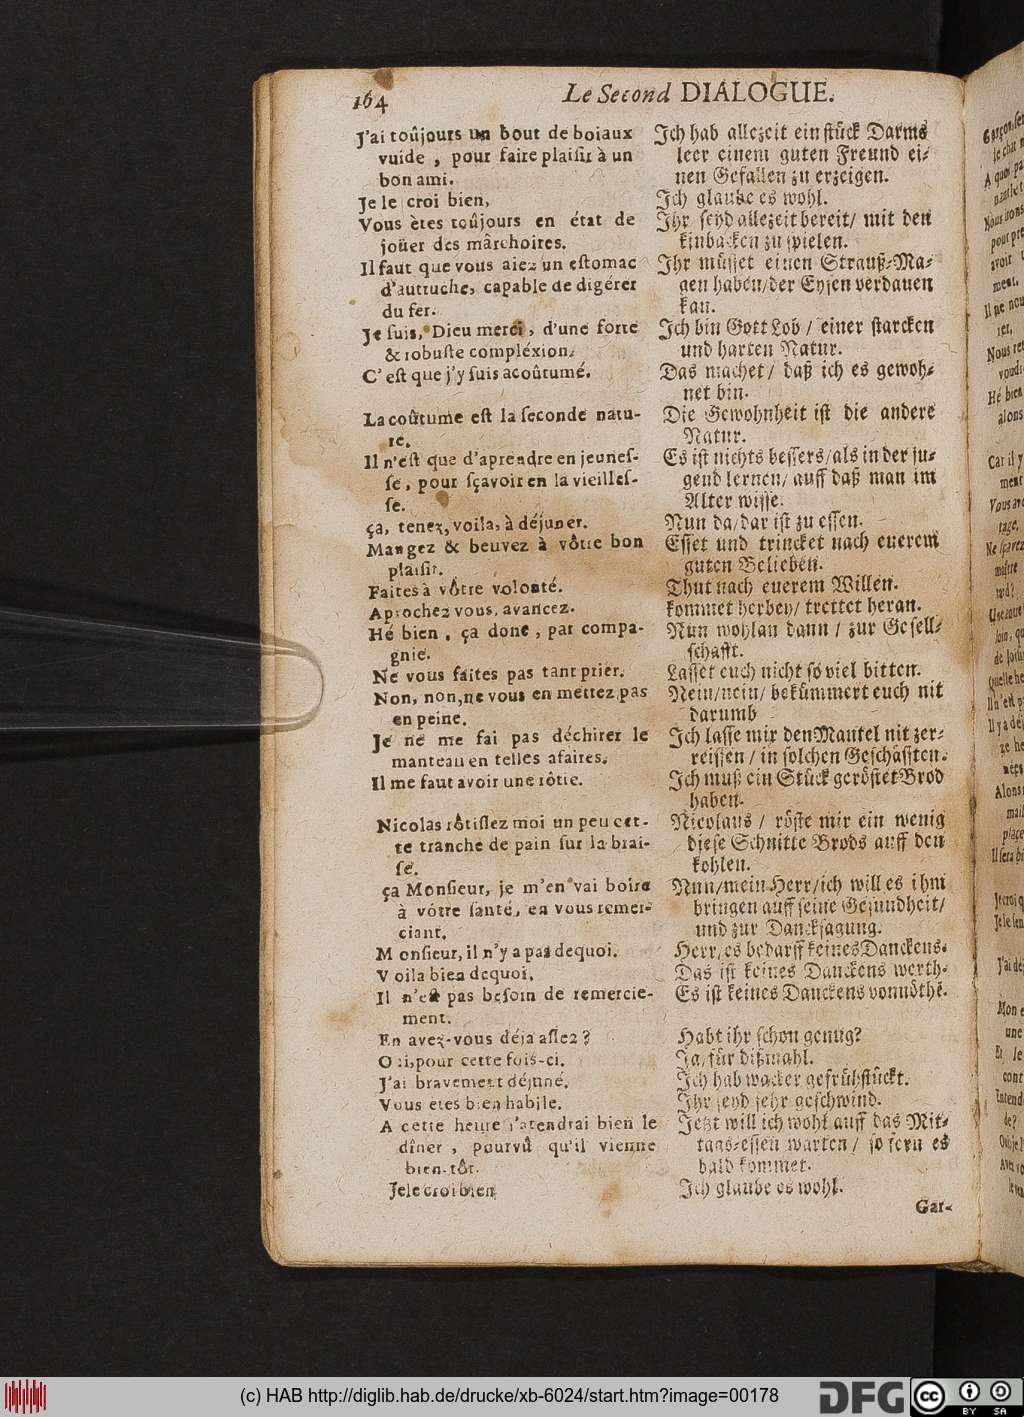 164
Le Second DIALOGUE.
J'ai toûjours un bout de boiaux
vuide, pour faire plaisir à un
bon ami.
Je le croi bien,
Vous ètes toûjours en état de
joüer des mârchoires.
Il faut que vous aiez un estomac
d'autruche, capable de digérer
du fer.
Je suis, Dieu merci, d'une forte
& robuste compléxion.
C'est que j'y suis acoûtumé.
La coûtume est la seconde natu-
re.
Il n'est que d'aprendre en jeunes-
se, pour sçavoir en la vieilles-
se.
ça, tenez, voila, à déjuner.
Mangez & beuvez à vôtre bon
plaisir.
Faites à vôtre volonté.
Aprochez vous, avancez.
Hé bien, ça donc, par compa-
gnie.
Ne vous faites pas tant prier.
Non, non, ne vous en mettez pas
en peine.
Je ne me fai pas déchirer le
manteau en telles afaires.
Il me faut avoir une rôtie.
Nicolas rôtissez moi un peu cet-
te tranche de pain sur la brai-
se.
ça Monsieur, je m'en vai boire
à vôtre santé, en vous remer-
ciant.
Monsieur, il n'y a pas dequoi.
Voila bien dequoi.
Il n'est pas besoin de remercie-
ment.
En avez-vous déja assez?
Oui, pour cette fois-ci.
J'ai bravement déjuné.
Vous etes bien habile.
A cette heure j'atendrai bien le
dîner, pourvû qu'il vienne
bien-tôt.
Je le croi bien.
Ich hab allezeit ein stück Darms
leer einem guten Freund ei-
nen Gefallen zu erzeigen.
Ich glaube es wohl.
Ihr seyd allezeit bereit/ mit den
kinbacken zu spielen.
Ihr müsset einen Strauß-Ma-
gen haben/ der Eysen verdauen
kan.
Ich bin Gott Lob / einer starcken
und harten Natur.
Das machet/ daß ich es gewoh-
net bin.
Die Gewohnheit ist die andere
Natur.
Es ist nichts bessers/ als in der ju-
gend lernen/ auff daß man im
Alter wisse.
Nun da/ dar ist zu essen.
Esset und trincket nach euerem
guten Belieben.
Thut nach euerem Willen.
kommet herbey/ trettet heran.
Nun wohlan dann / zur Gesell-
schafft.
Lasset euch nicht so viel bitten.
Nein/ nein/ bekümmert euch nit
darumb
Ich lasse mir den Mantel nit zer-
reissen / in solchen Geschäfften.
Ich muß ein Stück geröstet Brod
haben.
Nicolaus / röste mir ein wenig
diese Schnitte Brods auff den
kohlen.
Nun/ mein Herr/ ich will es ihm
bringen auff seine Gesundheit/
und zur Dancksagung.
Herr, es bedarff keines Danckens.
Das ist keines Danckens werth.
Es ist keines Danckens vonnöthe.
Habt ihr schon genug?
Ja, für dißmahl.
Ich hab wacker gefrühstückt.
Ihr seyd sehr geschwind.
Jetzt will ich wohl auff das Mit-
tags-essen warten / so fern es
bald kommet.
Ich glaube es wohl.
Gar-
(c) HAB http://diglib.hab.de/drucke/xb-6024/start.htm?image=00178
DFG
cc
BY SA